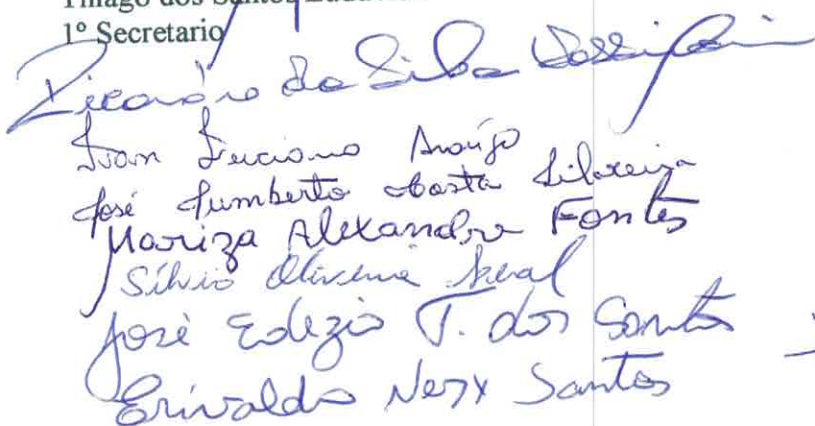 Thiago dos Santos
1º Secretario
Ricardo da Silva
Ivan Luciano Araújo
José Humberto Costa Silveira
Mariza Alexandre Fontes
Silvio Oliveira
José Edezio T. dos Santos
Erivaldo Nery Santos